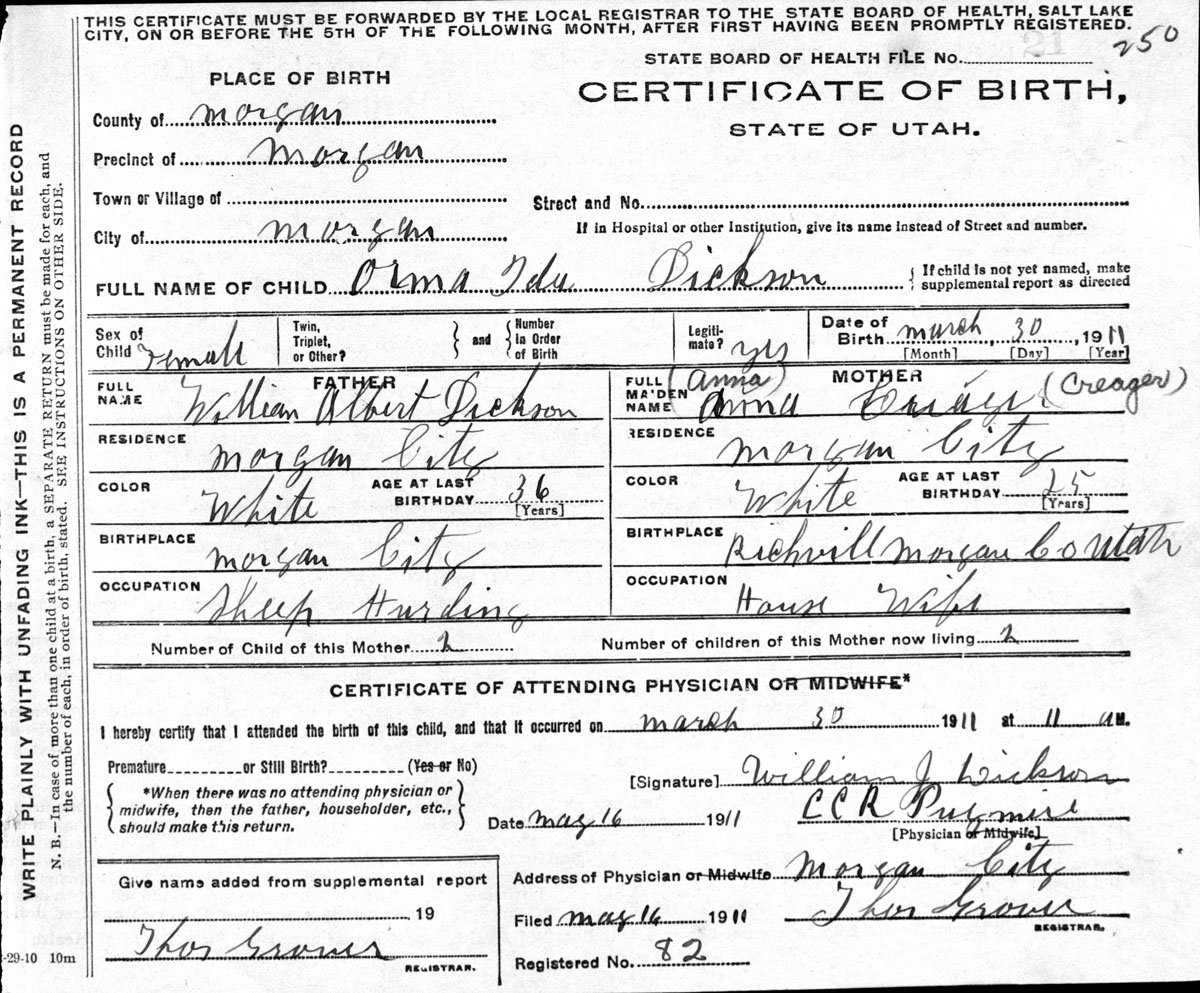 THIS CERTIFICATE MUST BE FORWARDED BY THE LOCAL REGISTRAR TO THE STATE BOARD OF HEALTH, SALT LAKE
CITY, ON OR BEFORE THE 5TH OF THE FOLLOWING MONTH, AFTER FIRST HAVING BEEN PROMPTLY REGISTERED.
250
STATE BOARD OF HEALTH FILE No.
PLACE OF BIRTH
CERTIFICATE OF BIRTH,
STATE OF UTAH.
County of Morgan
Precinct of Morgan
Town or Village of
Street and No.
City of Morgan
If in Hospital or other Institution, give its name instead of Street and number.
FULL NAME OF CHILD Orma Ida Dickson { If child is not yet named, make supplemental report as directed
Sex of Child Female Twin, Triplet, or Other? } and { Number in Order of Birth Legiti- mate? yes Date of Birth March 30, 1911
[Month] [Day] [Year]
FULL NAME FATHER William Albert Dickson
RESIDENCE Morgan City
COLOR White AGE AT LAST BIRTHDAY 36 [Years]
BIRTHPLACE Morgan City
OCCUPATION Sheep Hurding
FULL MAIDEN NAME MOTHER (Anna) Anna (Creager)
RESIDENCE Morgan City
COLOR White AGE AT LAST BIRTHDAY 25 [Years]
BIRTHPLACE Richvill Morgan Co Utah
OCCUPATION House Wife
Number of Child of this Mother 2 Number of children of this Mother now living 2
CERTIFICATE OF ATTENDING PHYSICIAN OR MIDWIFE*
I hereby certify that I attended the birth of this child, and that it occurred on March 30 1911 at 11 AM.
Premature or Still Birth? (Yes or No)
{ *When there was no attending physician or midwife, then the father, householder, etc., should make this return. }
[Signature] William J Dickson
C C R Pugmire
[Physician or Midwife]
Date May 16 1911
Address of Physician or Midwife Morgan City
Filed May 16 1911 Thos Grover
REGISTRAR.
Registered No. 82
Give name added from supplemental report
19
Thos Grover
REGISTRAR.
-29-10 10m
WRITE PLAINLY WITH UNFADING INK—THIS IS A PERMANENT RECORD
N. B.—In case of more than one child at a birth, a SEPARATE RETURN must be made for each, and
the number of each, in order of birth, stated. SEE INSTRUCTIONS ON OTHER SIDE.